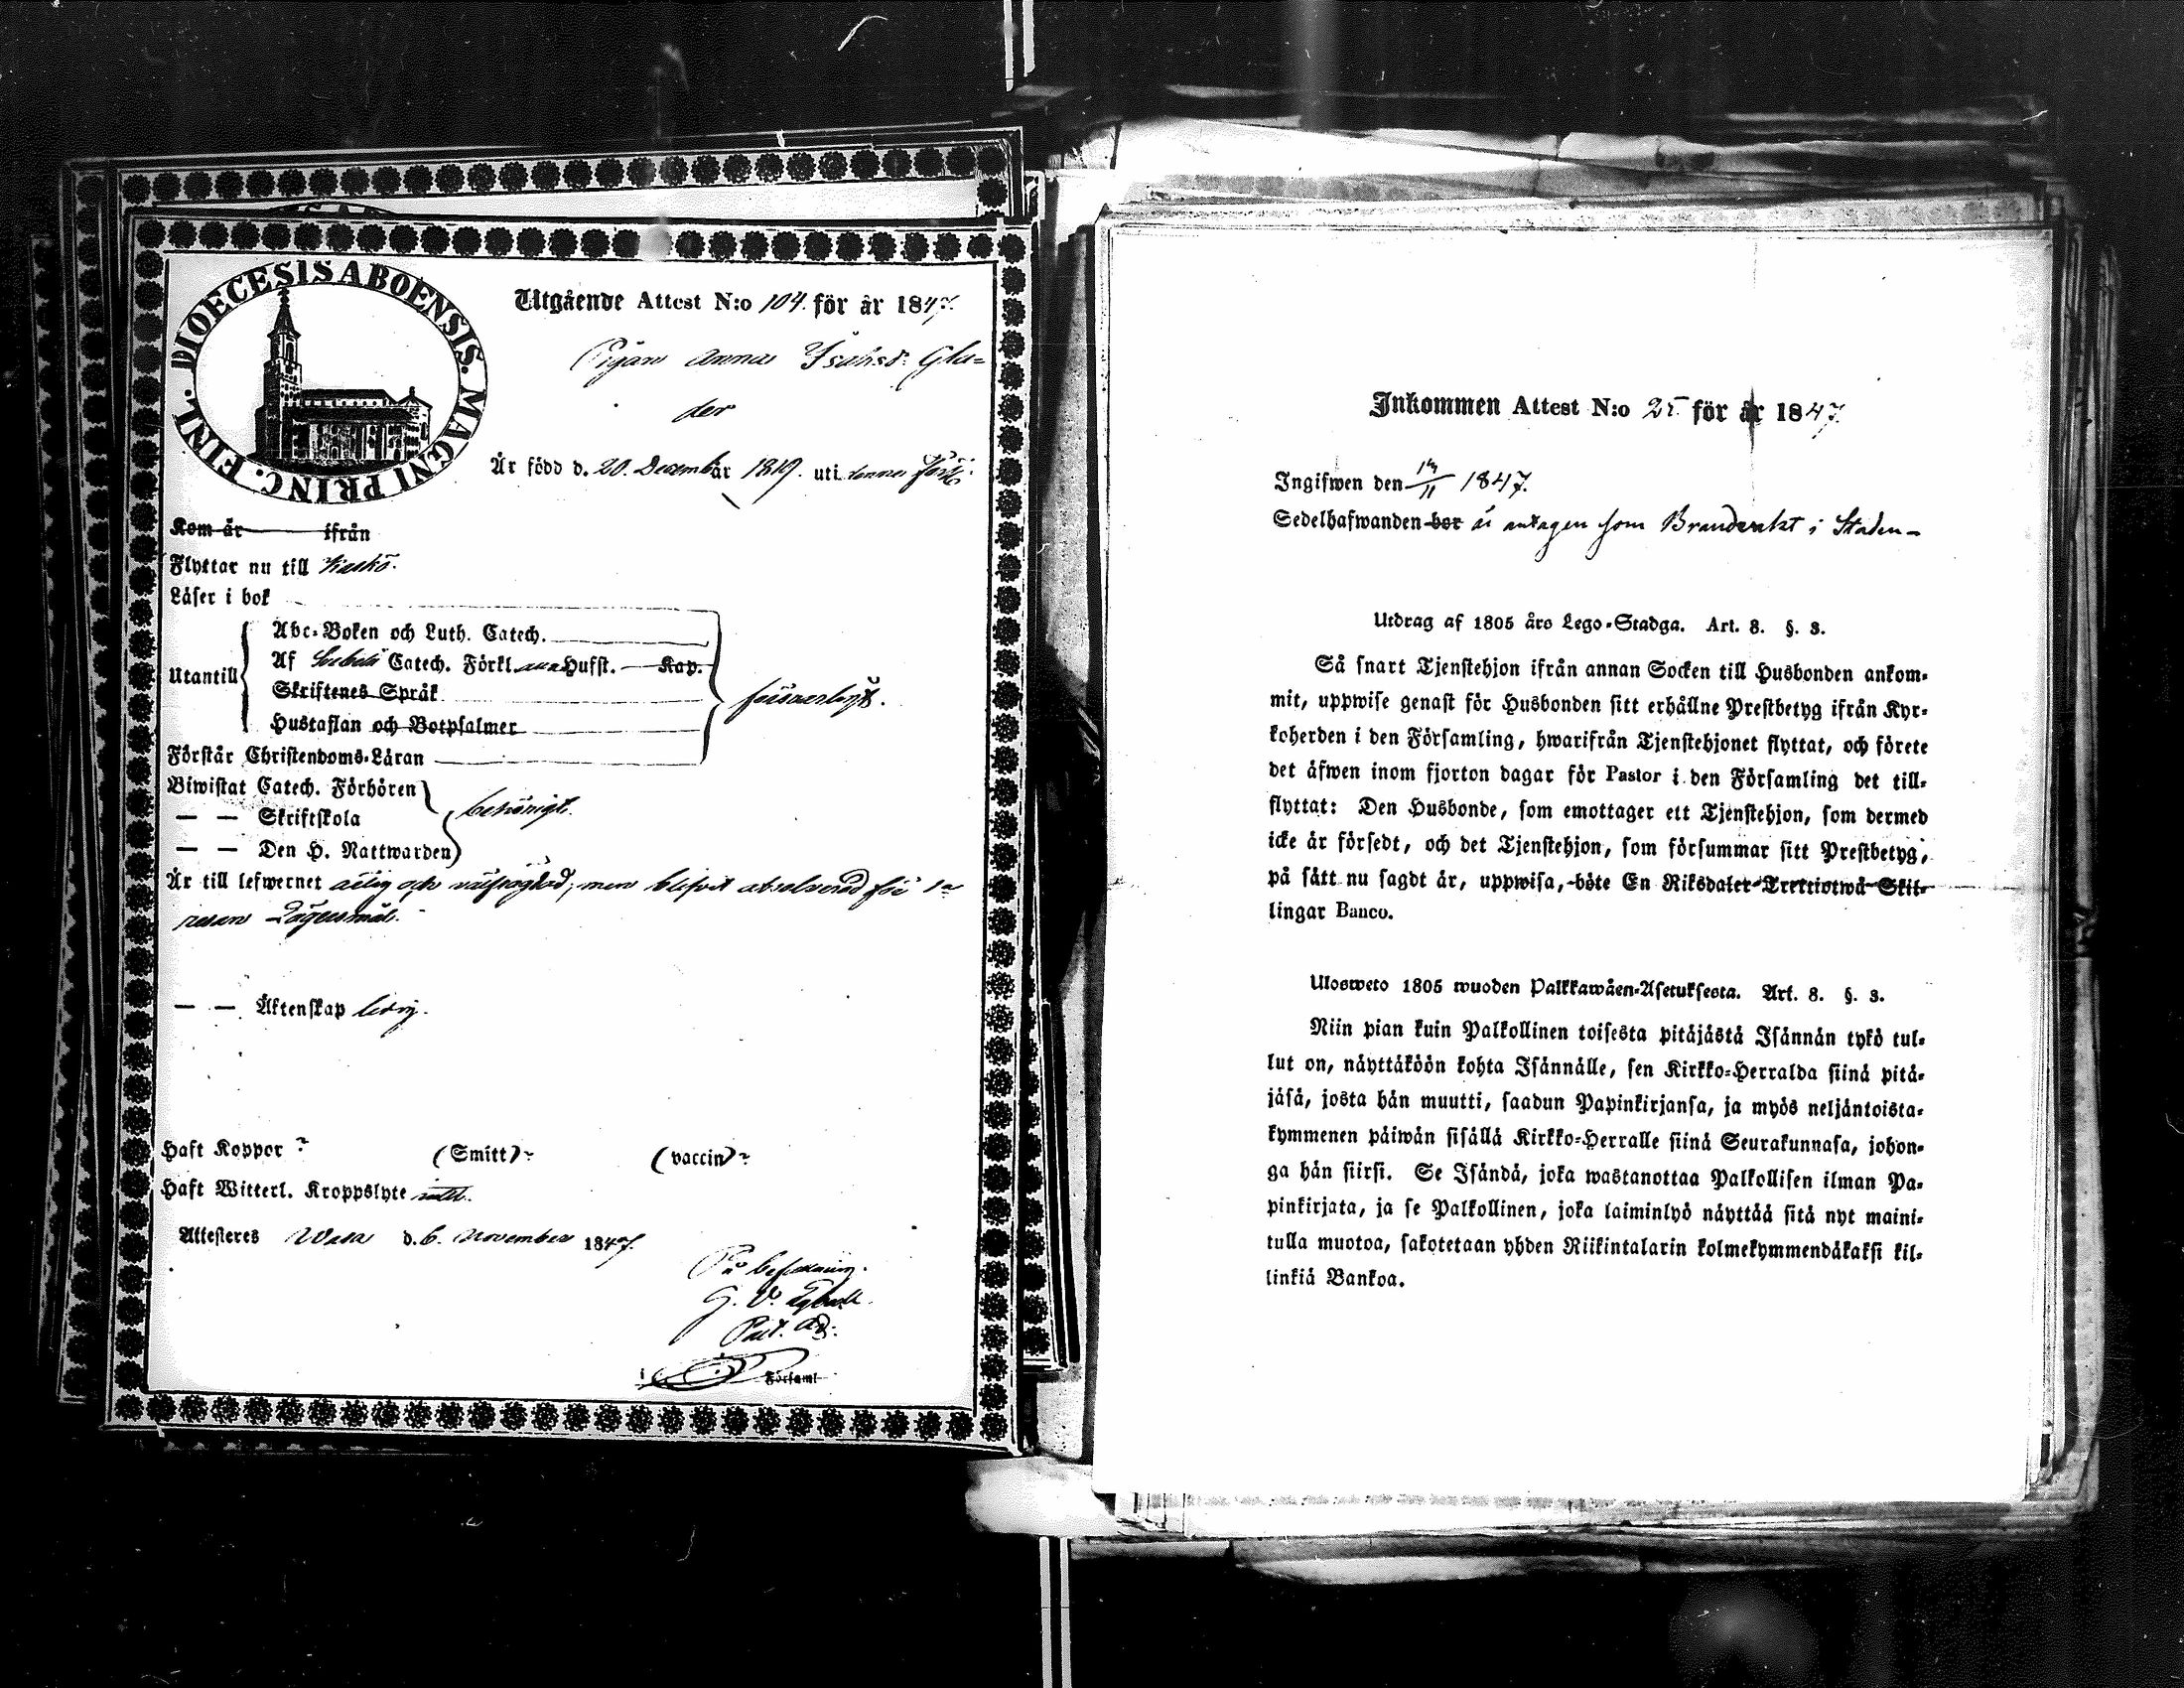 DIOECESIS ABOENSIS. MAGNI PRINC. FINL.
Utgående Attest N:o 104. för år 1847.
Pigan Anna Isaksd: Gla=
der
Är född d. 20. Decemb år 1819. uti denna förs:
Kom år ifrån
Flyttar nu till Kaskö.
Läser i bok
Utantill
Abc-Boken och Luth. Catech.
Af Svebelii Catech. Förkl. Hufst. Kap.
Skriftenes Språk
Hustaflan och Botpsalmer
försvarligt.
Förstår Christendoms-Läran
Biwistat Catech. Förhören
— — Skriftskola
— — Den H. Nattwarden
behörigt.
Är till lefwernet ärlig och välfrägdad, men blifvit absolverad för 1a
resan Lägersmål.
— — Äktenskap ledig.
Haft Koppor ? (Smitt) ? (vaccin) ?
Haft Witterl. Kroppslyte intet.
Attesteres Wasa d. 6. November 1847.
På befallning.
G. V.
Past. Adj:
Församl
Inkommen Attest N:o 25 för år 1847.
Ingifwen den 14/11 1847.
Sedelhafwanden bor är antagen som Brandvakt i Staden –
Utdrag af 1805 års Lego-Stadga. Art. 8. §. 3.
Så snart Tjenstehjon ifrån annan Socken till Husbonden ankom-
mit, uppwise genast för Husbonden sitt erhållne Prestbetyg ifrån Kyr-
koherden i den Församling, hwarifrån Tjenstehjonet flyttat, och förete
det äfwen inom fjorton dagar för Pastor i den Församling det till-
flyttat: Den Husbonde, som emottager ett Tjenstehjon, som dermed
icke är försedt, och det Tjenstehjon, som försummar sitt Prestbetyg,
på sätt nu sagdt är, uppwisa, böte En Riksdaler Trettiotwå Skil-
lingar Banco.
Ulosweto 1805 wuoden Palkkawäen-Asetuksesta. Art. 8. §. 3.
Niin pian kuin Palkollinen toisesta pitäjästä Isännän tykö tul-
lut on, näyttäköön kohta Isännälle, sen Kirkko-Herralda siinä pitä-
jäsä, josta hän muutti, saadun Papinkirjansa, ja myös neljäntoista-
kymmenen päiwän sisällä Kirkko-Herralle siinä Seurakunnasa, johon-
ga hän siirsi. Se Isändä, joka wastanottaa Palkollisen ilman Pa-
pinkirjata, ja se Palkollinen, joka laiminlyö näyttää sitä nyt maini-
tulla muotoa, sakotetaan yhden Riikintalarin kolmekymmendäkaksi kil-
linkiä Bankoa.